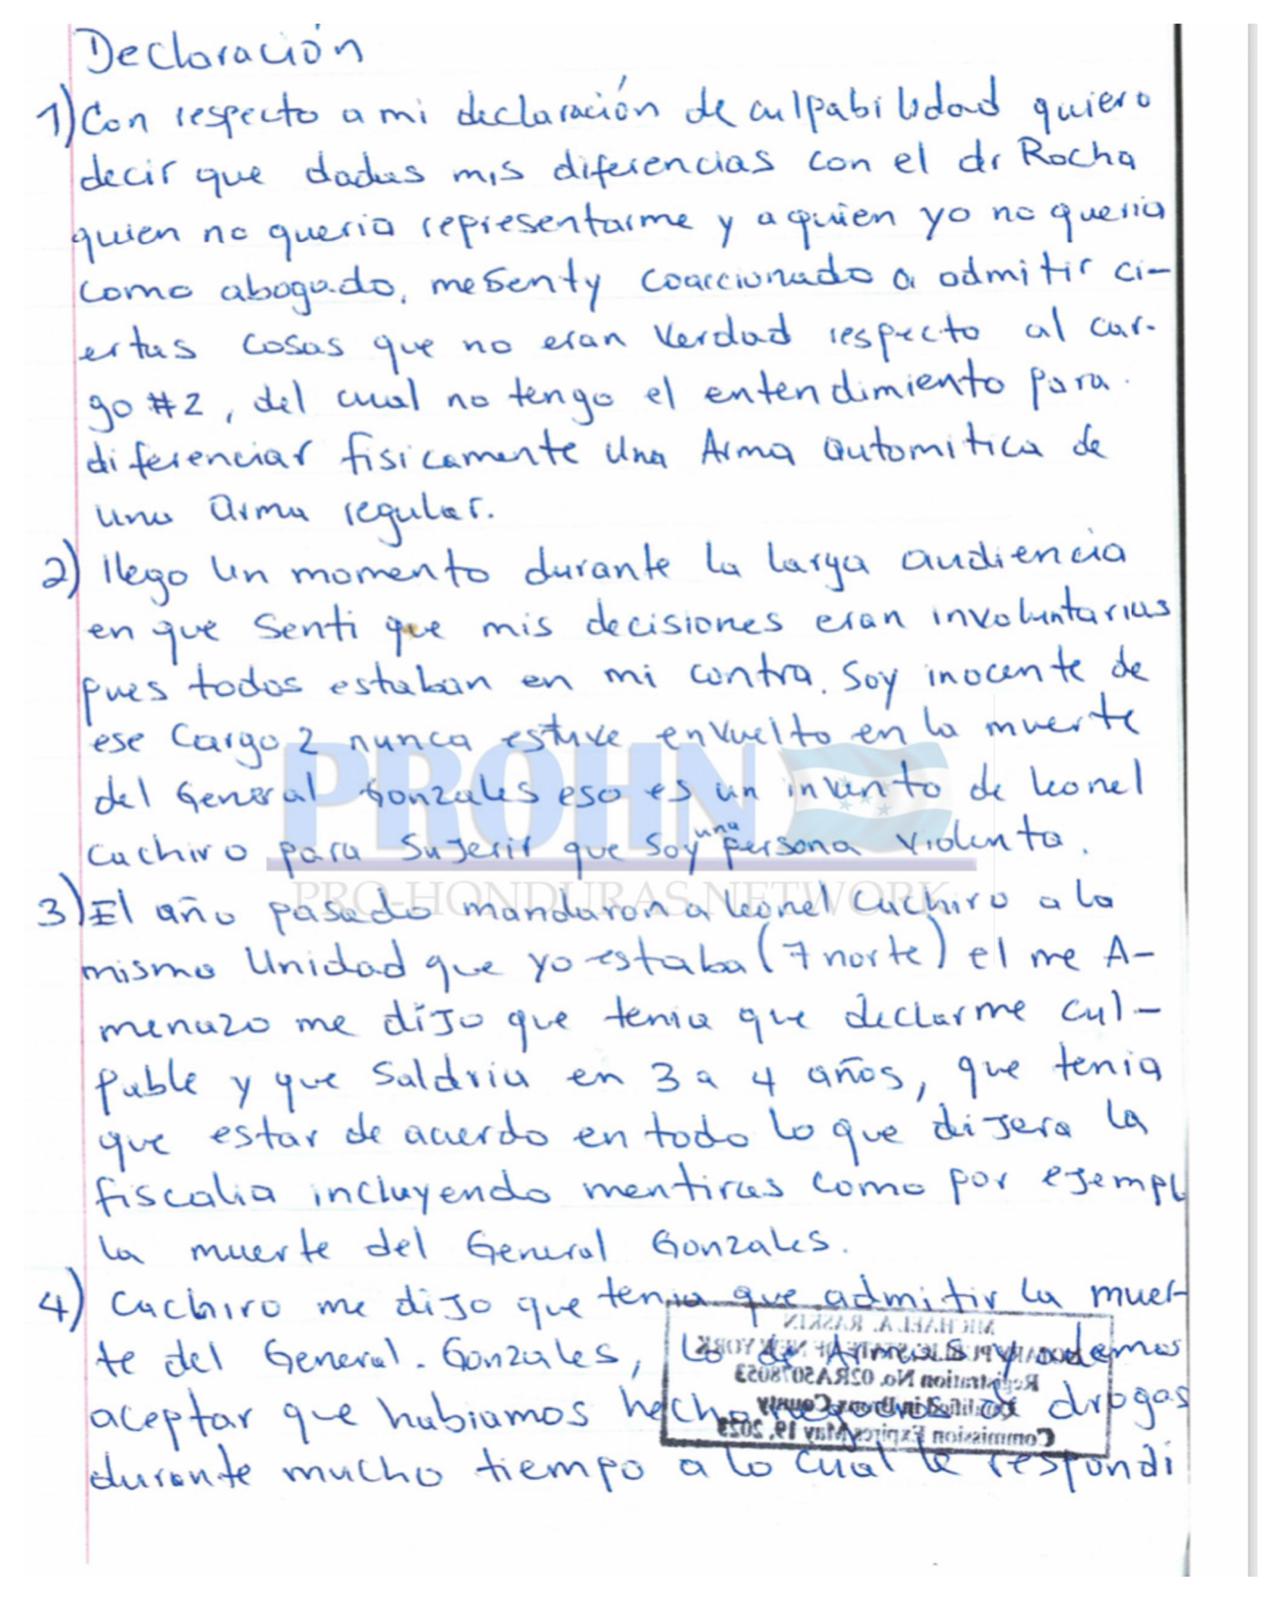 Declaración
1) Con respecto a mi declaración de culpabilidad quiero
decir que dadas mis diferencias con el dr Rocha
quien no queria representarme y a quien yo no queria
como abogado, me senty coaccionado a admitir ci-
ertas cosas que no eran verdad respecto al car-
go #2, del cual no tengo el entendimiento para
diferenciar fisicamente una Arma automitica de
una arma regular.
2) llego un momento durante la larga audiencia
en que senti que mis decisiones eran involuntarias
pues todos estaban en mi contra. Soy inocente de
ese Cargo 2 nunca estuve envuelto en la muerte
del General Gonzales eso es un invento de leonel
Cachiro para sujerir que soy una persona violenta.
PROHN
PRO-HONDURAS NETWORK
3) El año pasado mandaron a leonel Cachiro a la
misma Unidad que yo estaba (7 norte) el me A-
menazo me dijo que tenia que declarme cul-
pable y que saldria en 3 a 4 años, que tenia
que estar de acuerdo en todo lo que dijera la
fiscalia incluyendo mentiras como por ejempl
la muerte del General Gonzales.
4) Cachiro me dijo que tenia que admitir la muer-
te del General. Gonzales, lo de Armas y ademas
aceptar que habiamos hecho negocios de drogas
durante mucho tiempo a lo cual le respondi
MICHAEL A. RASKIN
NOTARY PUBLIC, STATE OF NEW YORK
Registration No. 02RA5078053
Qualified in Bronx County
Commission Expires May 19, 2023